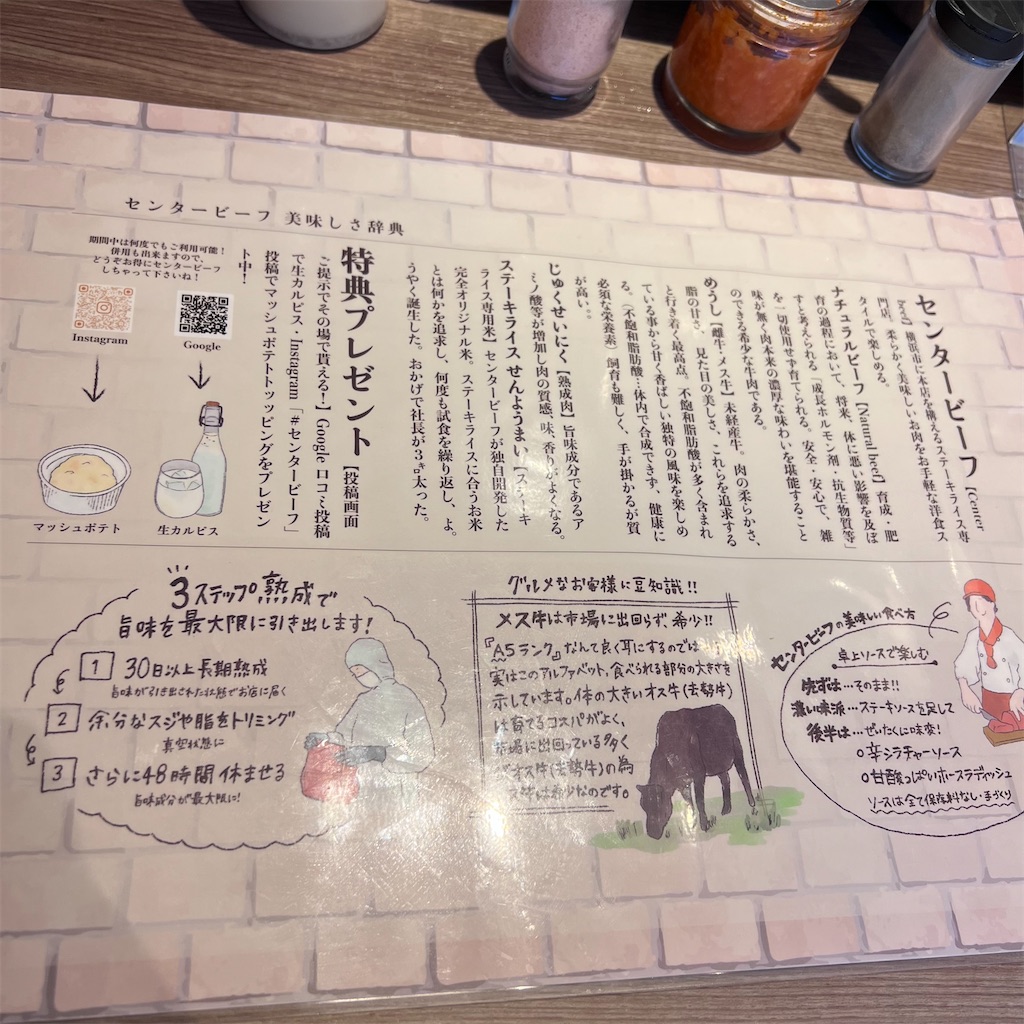 センタービーフ 美味しさ辞典
センタービーフ【Center
beef】横浜市に本店を構えるステーキライス専
門店。柔らかく美味しいお肉をお手軽な洋食ス
タイルで楽しめる。
ナチュラルビーフ【Natural beef】育成・肥
育の過程において、将来、体に悪い影響を及ぼ
すと考えられる「成長ホルモン剤・抗生物質等」
を一切使用せず育てられる。安全・安心で、雑
味が無く肉本来の濃厚な味わいを堪能すること
のできる希少な牛肉である。
めうし【雌牛・メス牛】未経産牛。肉の柔らかさ、
脂の甘さ、見た目の美しさ、これらを追求する
と行き着く最高点。不飽和脂肪酸が多く含まれ
ている事から甘く香ばしい独特の風味を楽しめ
る。（不飽和脂肪酸…体内で合成できず、健康に
必須な栄養素）飼育も難しく、手が掛かるが質
が高い。
じゅくせいにく【熟成肉】旨味成分であるア
ミノ酸等が増加し肉の質感、味、香りがよくなる。
ステーキライスせんようまい【ステーキ
ライス専用米】センタービーフが独自開発した
完全オリジナル米。ステーキライスに合うお米
とは何かを追求し、何度も試食を繰り返し、よ
うやく誕生した。おかげで社長が3㌔太った。
特典プレゼント【投稿画面
ご提示でその場で貰える！】Google 口コミ投稿
で生カルピス・Instagram「#センタービーフ」
投稿でマッシュポテトトッピングをプレゼン
ト中！
期間中は何度でもご利用可能！
併用も出来ますので、
どうぞお得にセンタービーフ
しちゃって下さいね！
Instagram
Google
マッシュポテト
生カルピス
3ステップ熟成で
旨味を最大限に引き出します！
1 30日以上長期熟成
旨味が引き出された状態でお店に届く
2 余分なスジや脂をトリミング
真空状態に
3 さらに48時間休ませる
旨味成分が最大限に！
グルメなお客様に豆知識!!
メス牛は市場に出回らず、希少!!
『A5ランク』なんて良く耳にするのでは
実はこのアルファベット、食べられる部分の大きさを
示しています。体の大きいオス牛（去勢牛）
は育てるコスパがよく、
市場に出回っている多く
がオス牛（去勢牛）の為
メス牛は希少なのです。
センタービーフの美味しい食べ方
卓上ソースで楽しむ
先ずは…そのまま!!
濃い味派…ステーキソースを足して
後半は…ぜいたくに味変！
辛シラチャーソース
甘酸っぱいホースラディッシュ
ソースは全て保存料なし・手づくり